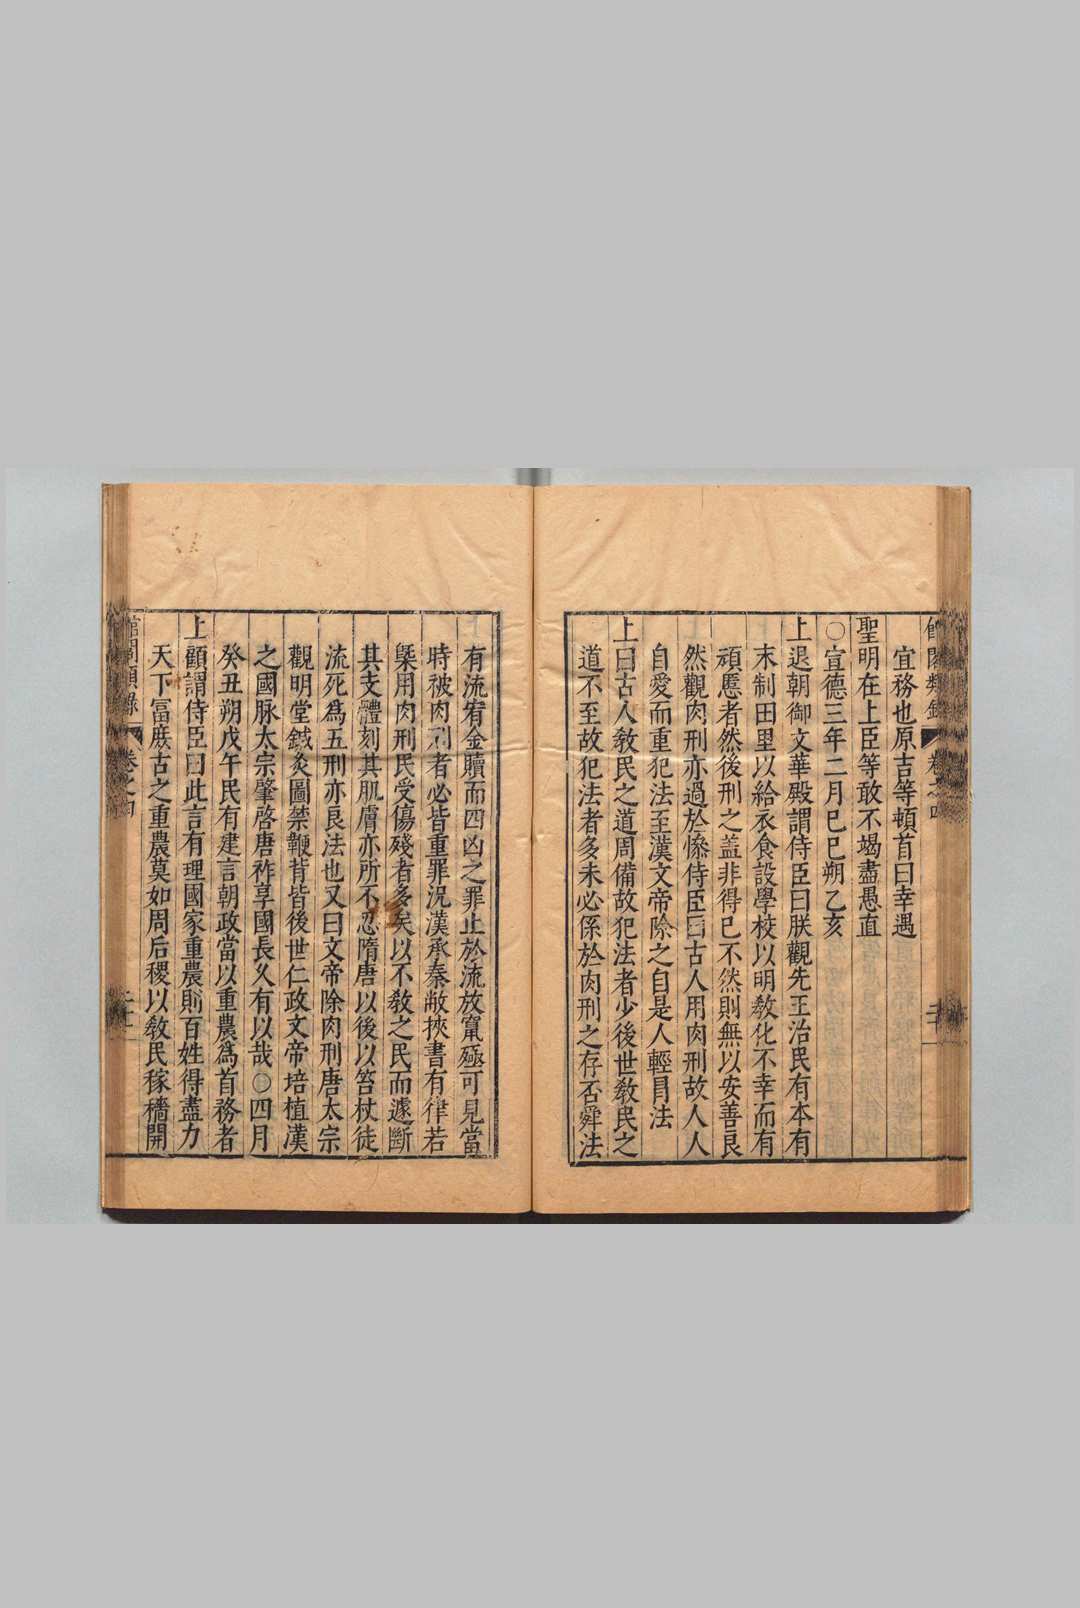 館閣類錄 卷之四
宜務也原吉等頓首曰幸遇
聖明在上臣等敢不竭盡愚直
○宣德三年二月己巳朔乙亥
上退朝御文華殿謂侍臣曰朕觀先王治民有本有
末制田里以給衣食設學校以明教化不幸而有
頑慝者然後刑之蓋非得已不然則無以安善良
然觀肉刑亦過於慘侍臣曰古人用肉刑故人人
自愛而重犯法至漢文帝除之自是人輕冐法
上曰古人教民之道周備故犯法者少後世教民之
道不至故犯法者多未必係於肉刑之存否舜法
有流宥金贖而四凶之罪止於流放竄殛可見當
時被肉刑者必皆重罪況漢承秦敝挾書有律若
槩用肉刑民受傷殘者多矣以不教之民而遽斷
其支體刻其肌膚亦所不忍隋唐以後以笞杖徒
流死爲五刑亦良法也又曰文帝除肉刑唐太宗
觀明堂鍼灸圖禁鞭背皆後世仁政文帝培植漢
之國脉太宗肇啓唐祚享國長久有以哉○四月
癸丑朔戊午民有建言朝政當以重農爲首務者
上顧謂侍臣曰此言有理國家重農則百姓得盡力
天下富庶古之重農莫如周后稷以教民稼穡開
館閣類錄 卷之四